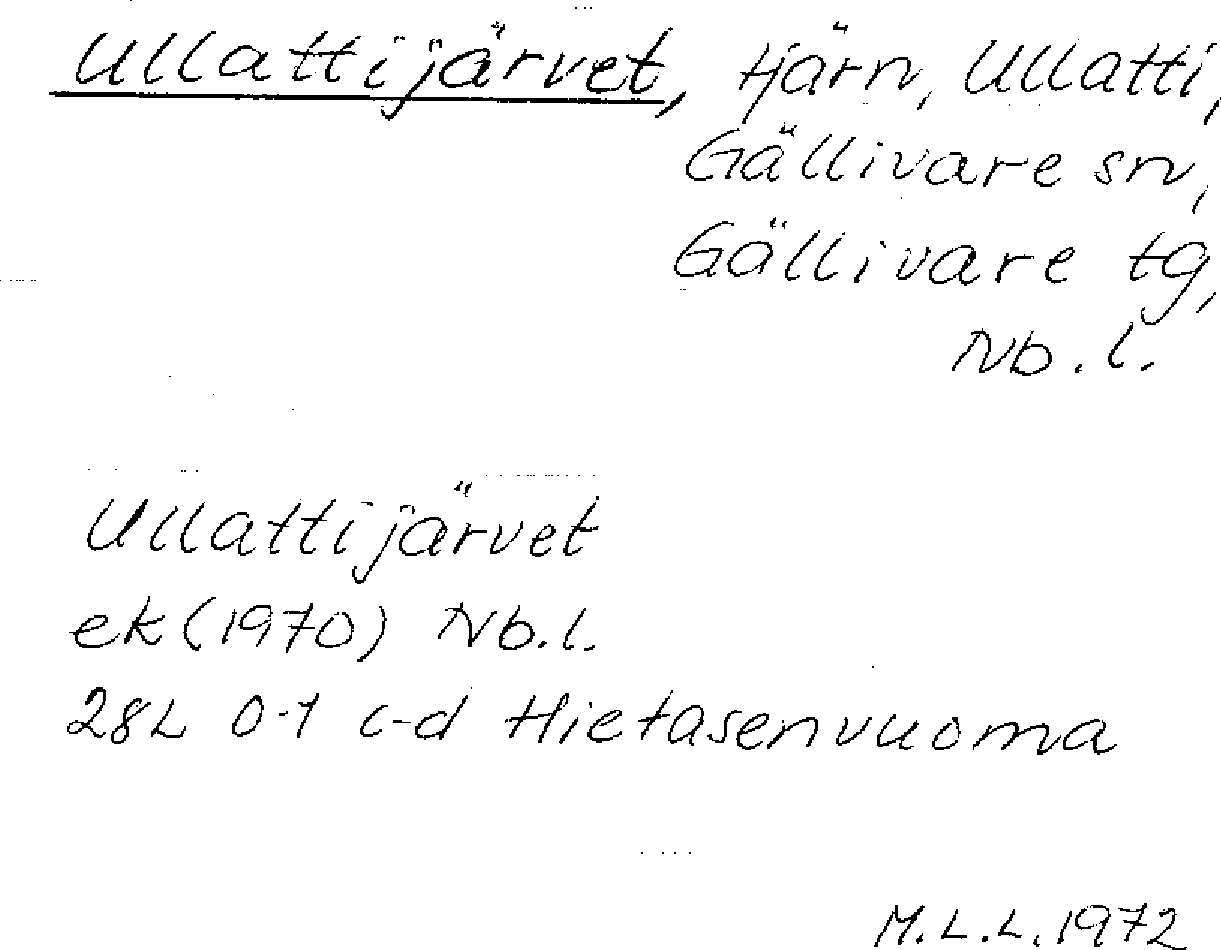 Ullattijärvet, tjärn, Ullatti,
Gällivare sn,
Gällivare tg,
Nb.l.
Ullattijärvet
ek (1970) Nb.l.
28L 0-1 c-d Hietasenvuoma
M.L.L. 1972